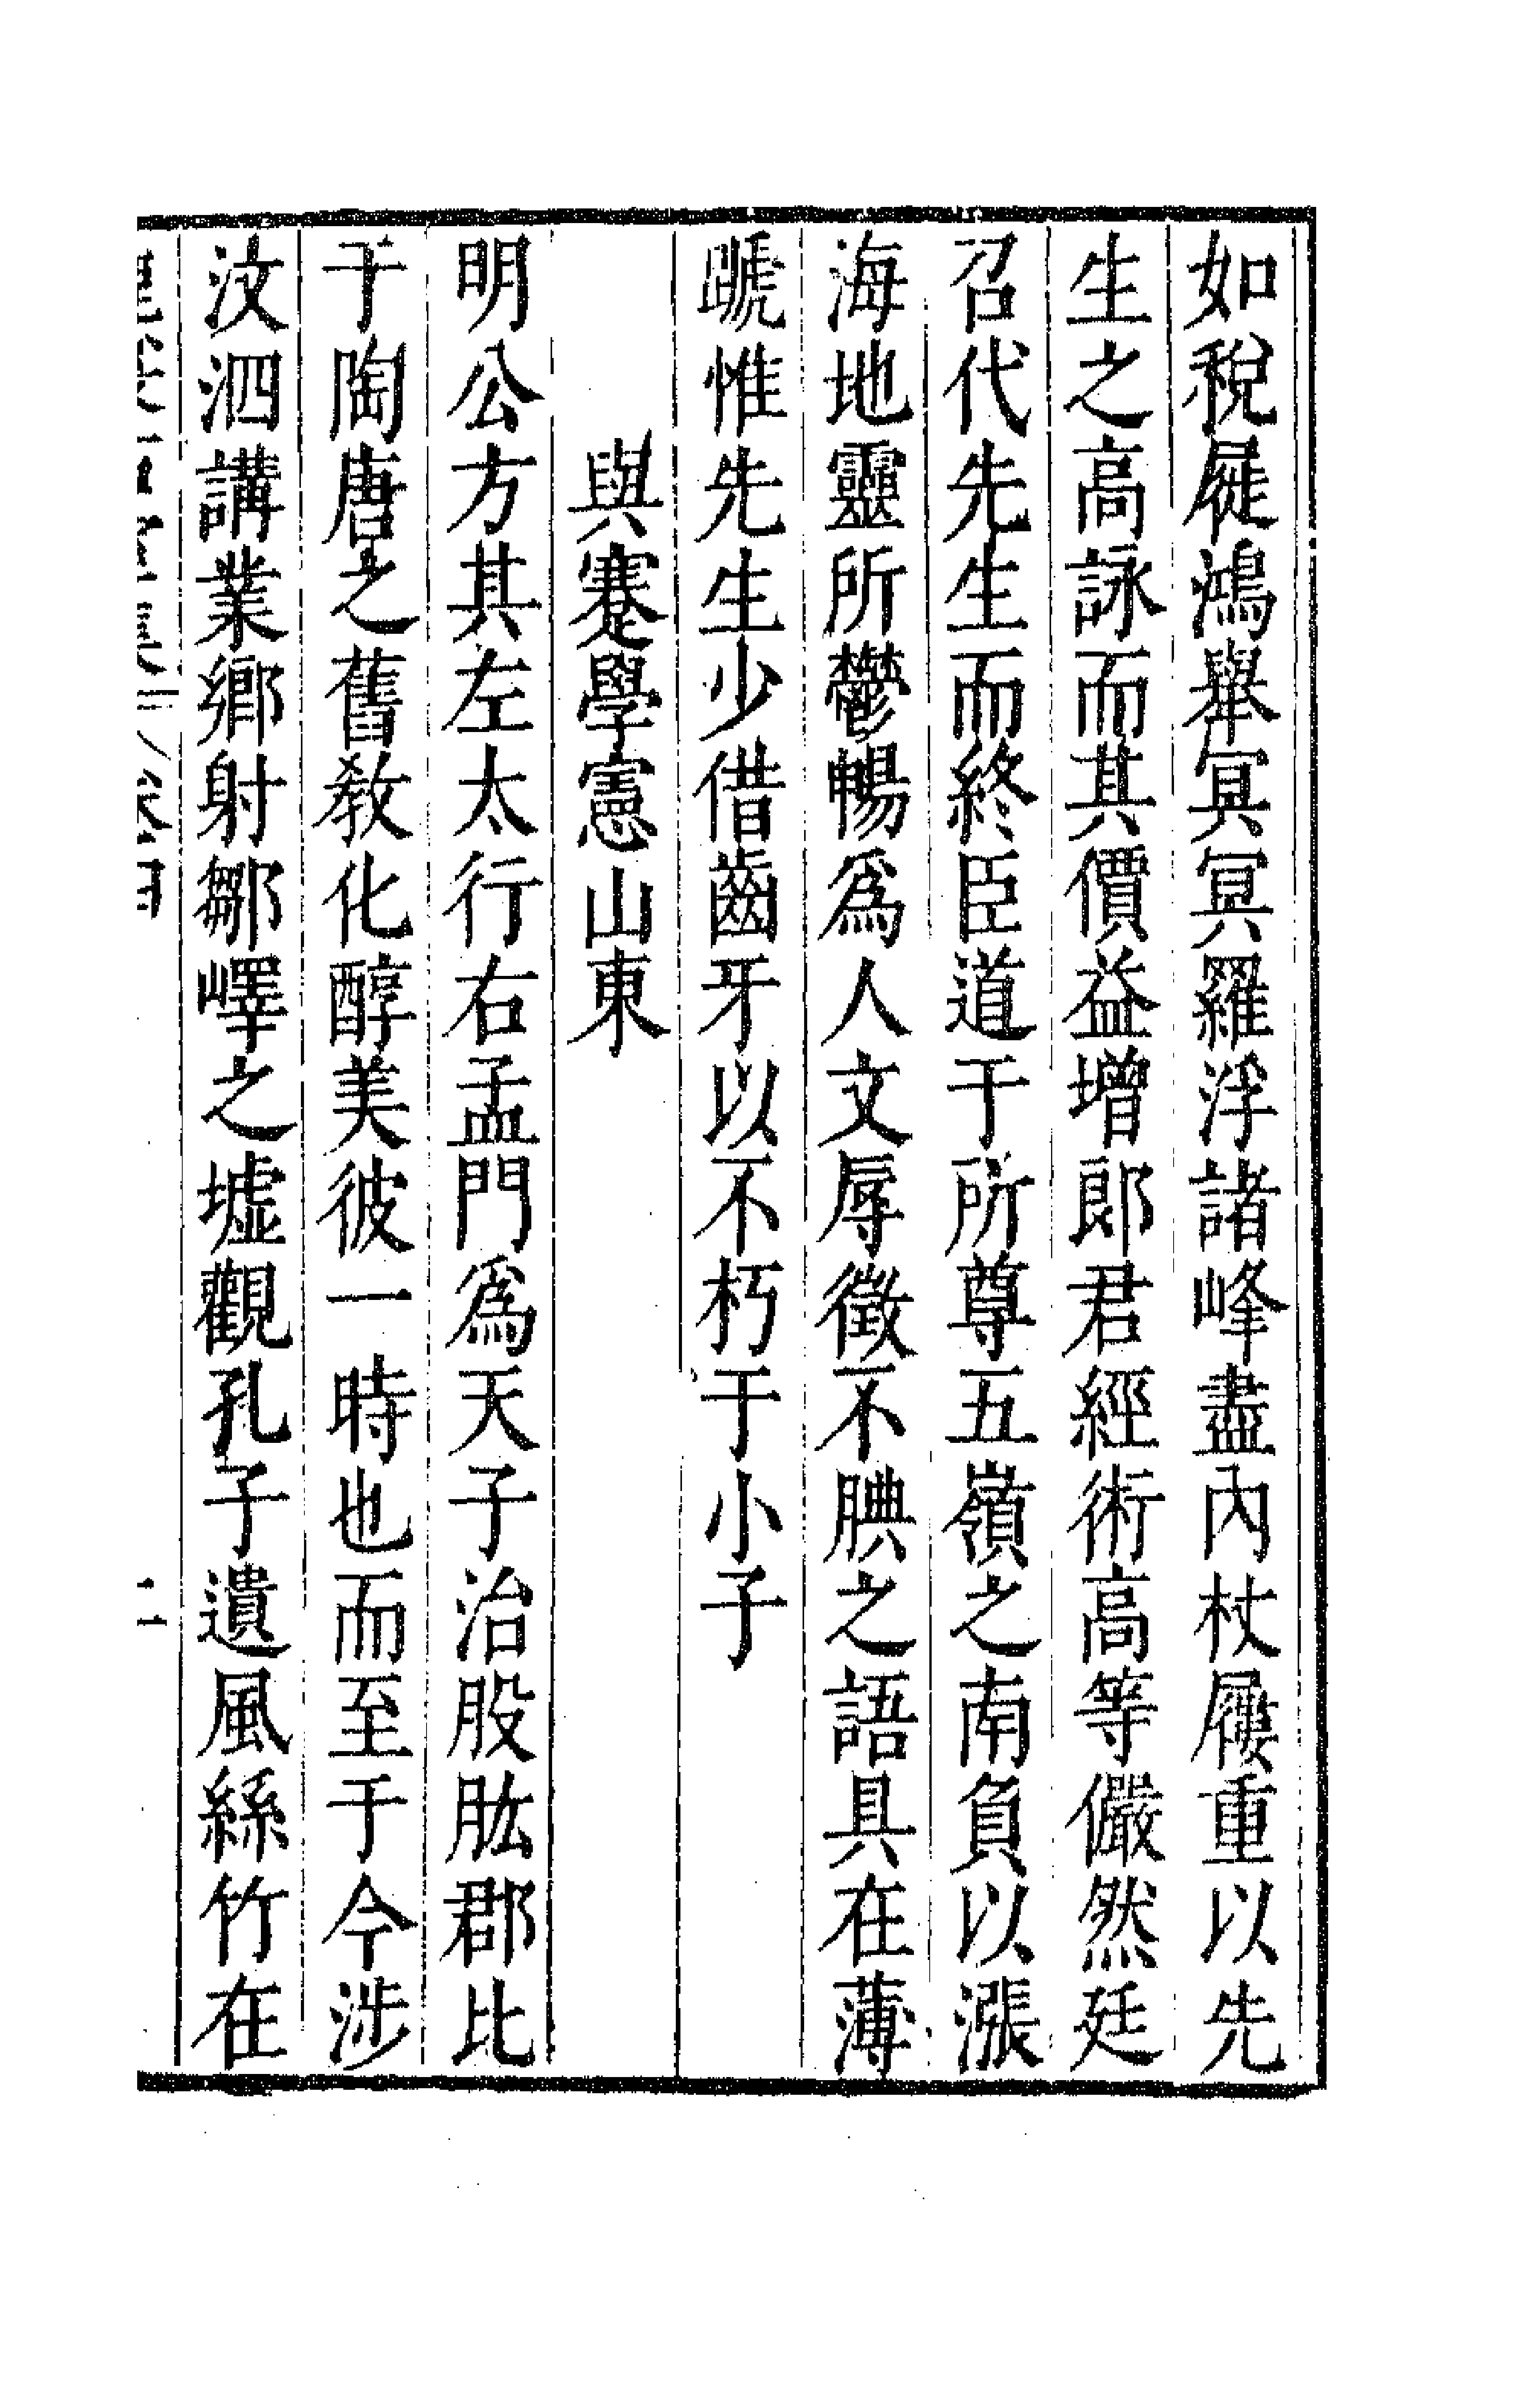 如稅屣鴻舉冥冥羅浮諸峰盡內杖屨重以先
生之高詠而其價益增郎君經術高等儼然廷
召代先生而終臣道于所尊五嶺之南負以漲
海地靈所鬱暢爲人文辱徵不腆之語具在薄
蹏惟先生少借齒牙以不朽于小子
與蹇學憲山東
明公方其左太行右孟門爲天子治股肱郡比
于陶唐之舊敎化醇美彼一時也而至于今涉
汶泗講業鄉射鄒嶧之墟觀孔子遺風絲竹在